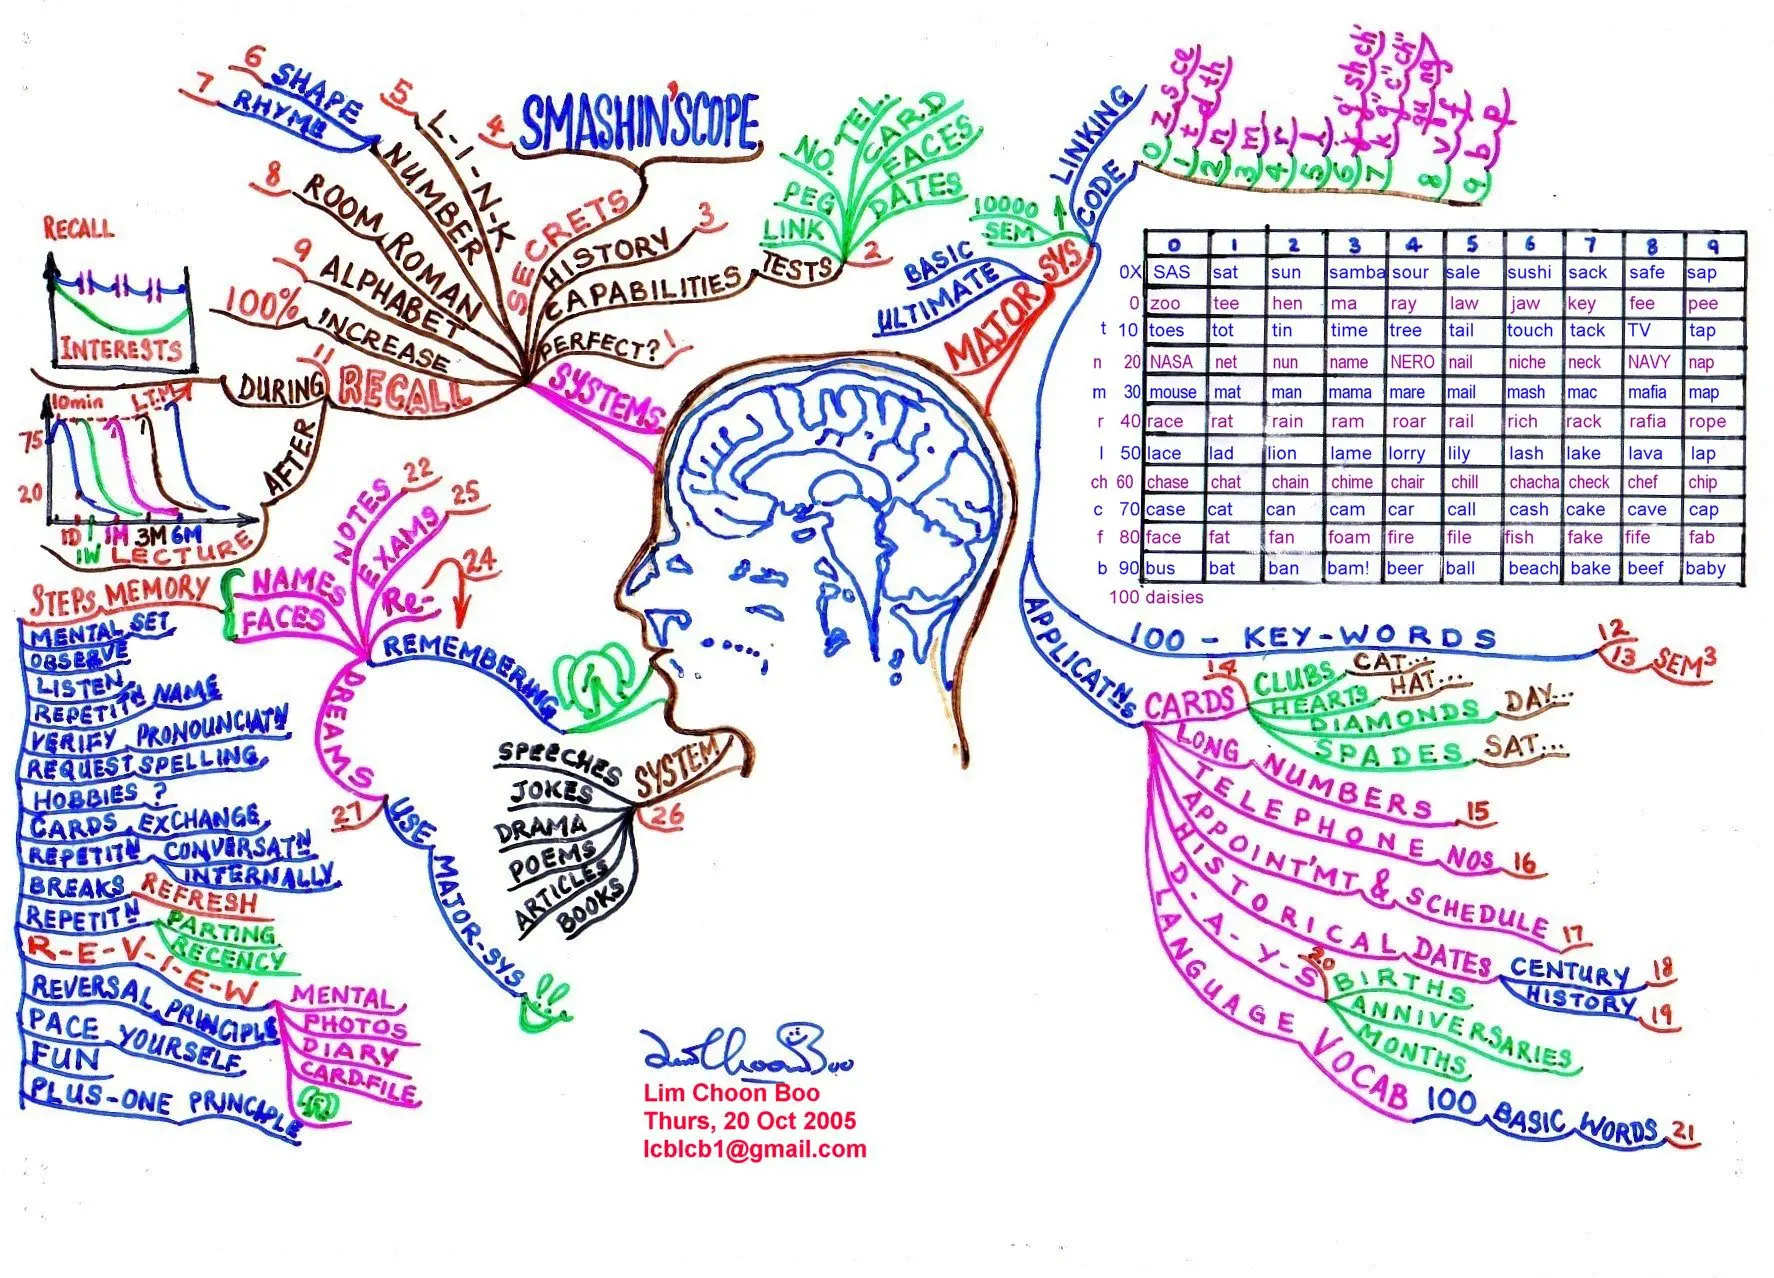 6 SHAPE
7 RHYME
NUMBER
5 L-I-N-K
4 SMASHIN'SCOPE
SECRETS
8 ROOM ROMAN
9 ALPHABET
100% INCREASE
HISTORY 3
CAPABILITIES TESTS 2
LINK
PEG
NO.
TEL.
CARD
FACES
DATES
PERFECT? 1
SYSTEMS
11 RECALL
DURING
AFTER
RECALL
INTERESTS
10min L.T.M
75
20
1D 1W 1M 3M 6M
LECTURE
MAJOR SYS
BASIC
ULTIMATE
10000
SEM
LINKING
CODE
0) z, s, ce
1) t d th
2) n
3) m
4) r
5) l
8) v f
9) b p
0 1 2 3 4 5 6 7 8 9
0X SAS sat sun samba sour sale sushi sack safe sap
0 zoo tee hen ma ray law jaw key fee pee
t 10 toes tot tin time tree tail touch tack TV tap
n 20 NASA net nun name NERO nail niche neck NAVY nap
m 30 mouse mat man mama mare mail mash mac mafia map
r 40 race rat rain ram roar rail rich rack rafia rope
l 50 lace lad lion lame lorry lily lash lake lava lap
ch 60 chase chat chain chime chair chill chacha check chef chip
c 70 case cat can cam car call cash cake cave cap
f 80 face fat fan foam fire file fish fake fife fab
b 90 bus bat ban bam! beer ball beach bake beef baby
100 daisies
100 - KEY-WORDS 12
13 SEM3
APPLICATNS
14 CARDS
CLUBS CAT...
HEARTS HAT...
DIAMONDS DAY...
SPADES SAT...
LONG NUMBERS 15
TELEPHONE NOS 16
APPOINT'MT & SCHEDULE 17
HISTORICAL DATES
CENTURY 18
HISTORY 19
D-A-Y-S 20
BIRTHS
ANNIVERSARIES
MONTHS
LANGUAGE VOCAB 100 BASIC WORDS 21
REMEMBERING
NOTES 22
EXAMS 25
Re- 24
NAMES
FACES
STEPS MEMORY
MENTAL SET
OBSERVE
LISTEN
REPETITN NAME
VERIFY PRONOUNCIATN
REQUEST SPELLING
HOBBIES ?
CARDS EXCHANGE
REPETITN CONVERSATN
INTERNALLY
BREAKS REFRESH
REPETITN PARTING
RECENCY
R-E-V-I-E-W
MENTAL
PHOTOS
DIARY
CARD-FILE
REVERSAL PRINCIPLE
PACE YOURSELF
FUN
PLUS-ONE PRINCIPLE
DREAMS
27
USE MAJOR-SYS
SYSTEM
26
SPEECHES
JOKES
DRAMA
POEMS
ARTICLES
BOOKS
Lim Choon Boo
Lim Choon Boo
Thurs, 20 Oct 2005
lcblcb1@gmail.com